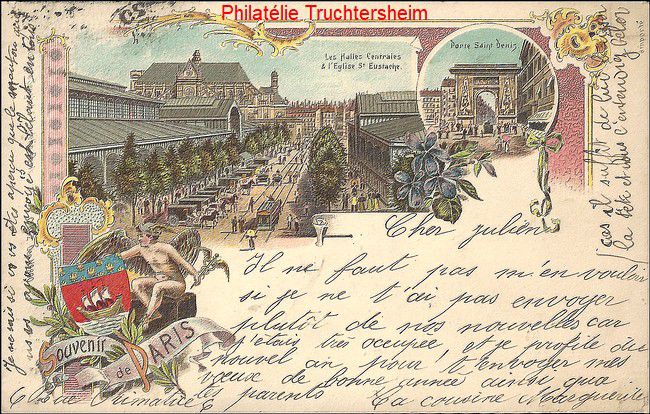 Philatélie Truchtersheim
Les Halles Centrales
& l'Eglise St Eustache.
Porte Saint Denis
Souvenir
de PARIS
Cher julien
Il ne faut pas m'en vouloir
si je ne t'ai pas envoyer
plutôt de nos nouvelles car
j'etais très occupée et je profite du
nouvel an pour t'envoyer mes
vœux de bonne année ainsi qua
les parents
Ta cousine Marguerite
Je ne sais si vs vs êtes aperçu que le
cas il suffit de lui
la tête et vous l'entendrez